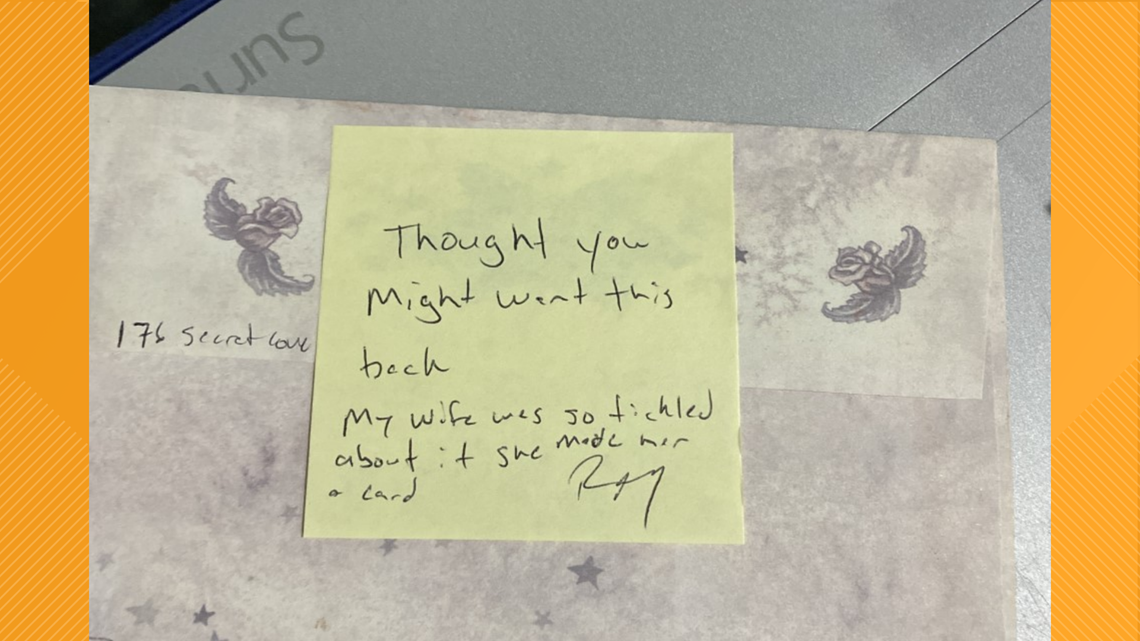 176 secret
Thought you
Might want this
back
My wife was so tickled
about it she made her
a card
RAY